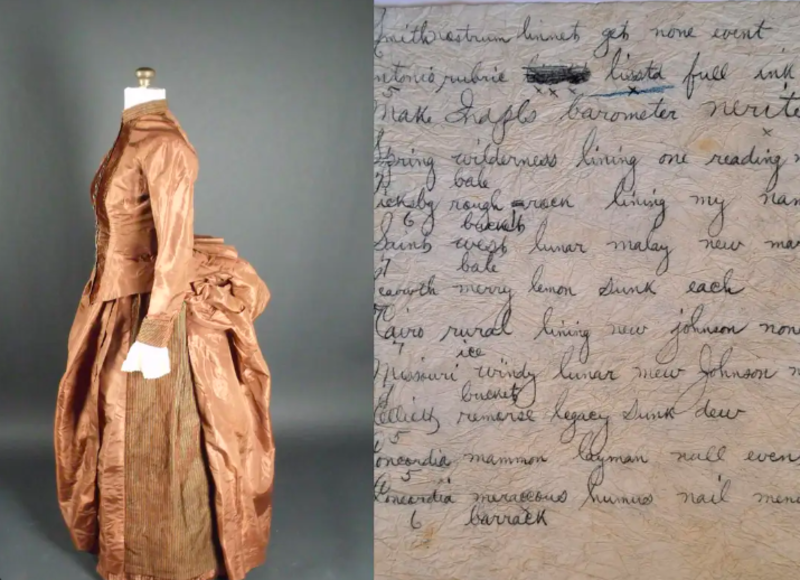 Smith nostrum linnet get none event
Antonio rubric lissta full ink
5
Make Indpls barometer nerite
Spring wilderness lining one reading
7 bale
Vicksbg rough rack lining my nan
6 bucket
Saints west lunar malay new mar
7 bale
Leavwth merry lemon sunk each
Cairo rural lining new johnson none
7 ice
Missouri windy lunar mew Johnson
bucket
Elliott removse legacy sunk dew
5
Concordia mammon layman null even
5
Concordia meraccous humus nail men
6 barrack